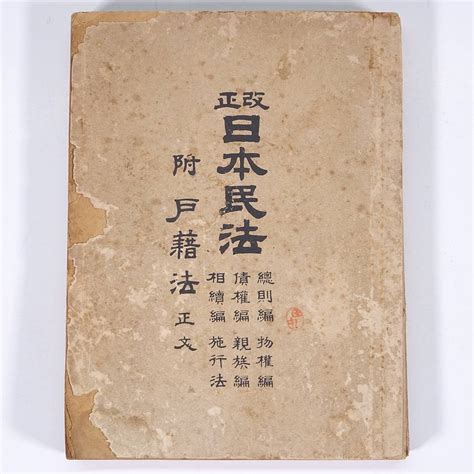 改正
日本民法
總則編 物權編
債權編 親族編
相續編 施行法
附 戸藉法 正文